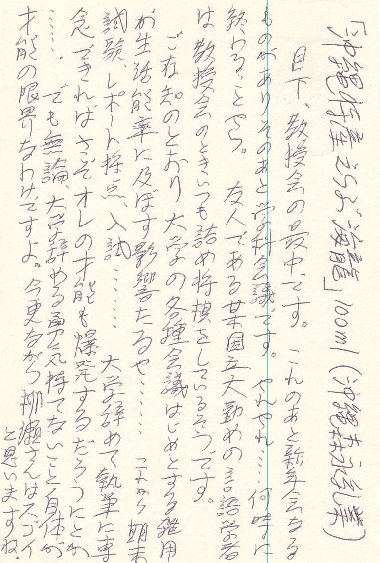 「沖縄特産えらぶ海龍」100ml(沖縄森永乳業)
目下、教授会の最中です。これのあと新年会なる
ものがありそのあと学科会議です。やれやれ……何時に
終わることやら。 友人である某国立大勤めの言語学者
は教授会のときいつも詰め将棋をしているそうです。
ご存知のとおり大学の各種会議はじめとする雑用
が生活能率に及ぼす影響たるや……これから期末
試験、レポート採点、入試……… 大学辞めて執筆に専
念できればさぞオレの才能も爆発するだろうにとか
……。でも無論、大学辞める勇気持てないこと自体が
才能の限界なわけですよ。今更ながら柳瀬さんはスゴイ
と思いますね。